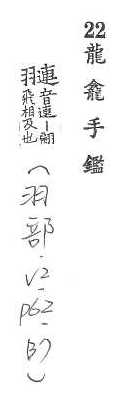 22龍龕手鑑
𦑸音連丨翩
羽飛相及也
(羽部.V2-p62-B7)